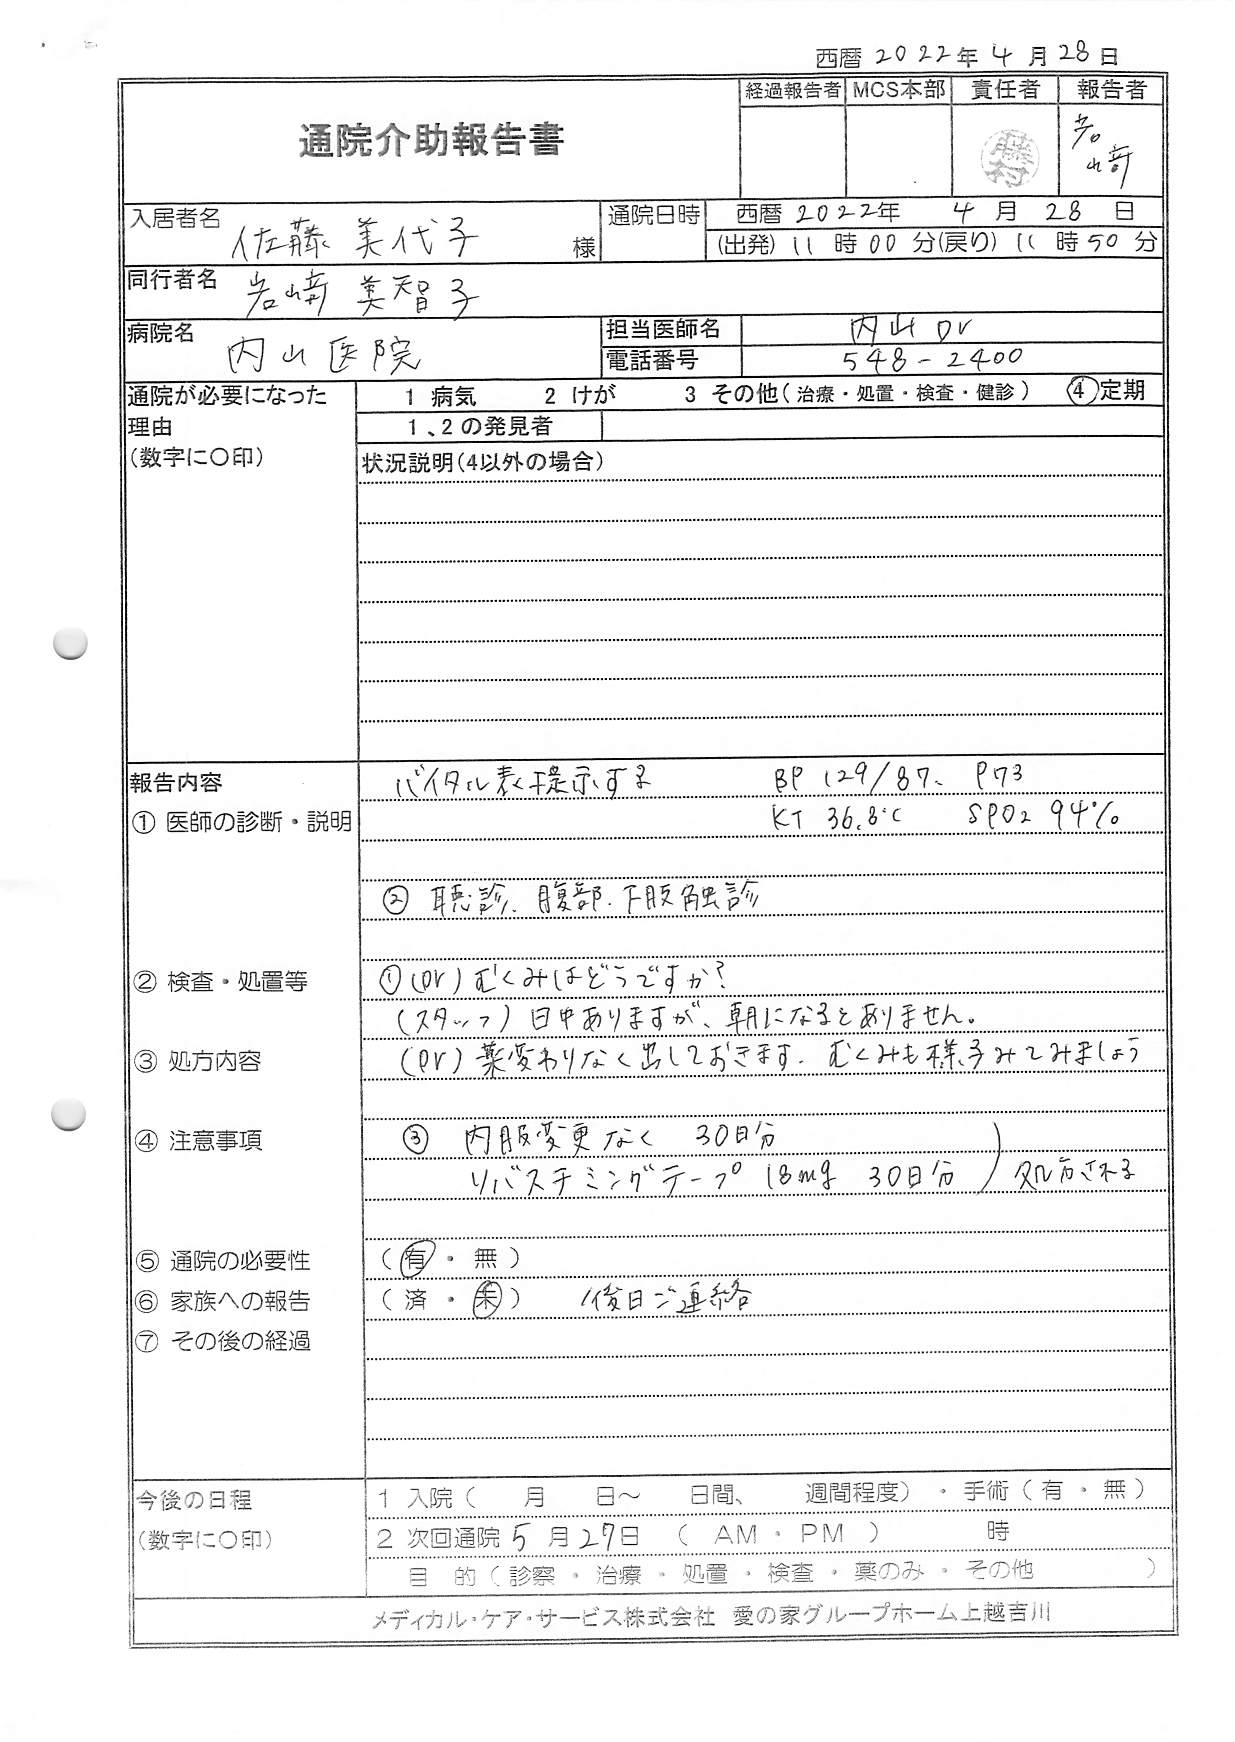 西暦 2022年 4月 28日
経過報告者 MCS本部 責任者 報告者
通院介助報告書
藤村
岩﨑
入居者名 佐藤 美代子 様
通院日時 西暦 2022年 4月 28日
(出発) 11時00分(戻り) 11時50分
同行者名 岩﨑 美智子
病院名 内山医院
担当医師名 内山Dr
電話番号 548-2400
通院が必要になった理由
(数字に〇印)
1 病気 2 けが 3 その他(治療・処置・検査・健診) ④定期
1、2の発見者
状況説明(4以外の場合)
報告内容
バイタル表提示する BP 129/87、P73
① 医師の診断・説明
KT 36.8℃ SPO2 94%
② 聴診、腹部、下肢触診
② 検査・処置等
①(Dr)むくみはどうですか?
(スタッフ)日中ありますが、朝になるとありません。
③ 処方内容
(Dr)薬変わりなく出しておきます。むくみも様子みてみましょう
④ 注意事項
③ 内服変更なく 30日分
リバスチミングテープ 18mg 30日分 ) 処方される
⑤ 通院の必要性 (有・無)
⑥ 家族への報告 (済・未) 後日ご連絡
⑦ その後の経過
今後の日程
(数字に〇印)
1 入院( 月 日~ 日間、 週間程度)・手術(有・無)
2 次回通院 5月27日 (AM・PM) 時
目 的(診察・治療・処置・検査・薬のみ・その他 )
メディカル・ケア・サービス株式会社 愛の家グループホーム上越吉川